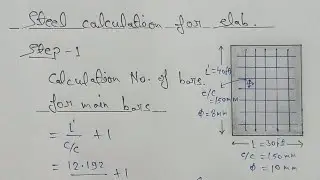 Steel calculation for slab.
Step-1
Calculation No. of bars.
for main bars
= L' / c/c + 1
= 12.192 + 1
L' = 40ft
c/c
= 150mm
Φ = 8mm
L = 30ft
c/c = 150mm
Φ = 10mm